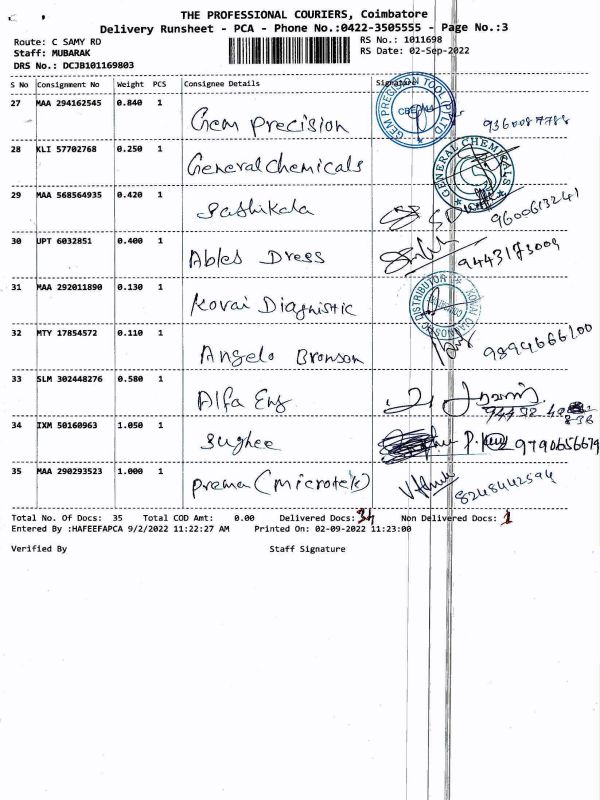 THE PROFESSIONAL COURIERS, Coimbatore
Delivery Runsheet - PCA - Phone No.:0422-3505555 - Page No.:3
Route: C SAMY RD
RS No.: 1011698
Staff: MUBARAK
RS Date: 02-Sep-2022
DRS No.: DCJB101169803
S No Consignment No Weight PCS Consignee Details Signature
27 MAA 294162545 0.840 1
Gem Precision
GEM PRECISION TOOL (P) LTD
CBE
28 KLI 57702768 0.250 1
General chemicals
GENERAL CHEMICALS
29 MAA 568564935 0.420 1
Sashikala
9600613241
30 UPT 6032851 0.400 1
Ables Dress
9443173009
31 MAA 292011890 0.130 1
Kovai Diagnistic
KOVAI DIAGNOSTIC DISTRIBUTOR
32 MTY 17854572 0.110 1
Angelo Bronson
33 SLM 302448276 0.580 1
Alfa Eng
34 IXM 50160963 1.050 1
Sughee
9790656679
35 MAA 290293523 1.000 1
prema (microtek)
8248442594
Total No. Of Docs: 35 Total COD Amt: 0.00 Delivered Docs: 34 Non Delivered Docs: 1
Entered By :HAFEEFAPCA 9/2/2022 11:22:27 AM Printed On: 02-09-2022 11:23:00
Verified By Staff Signature